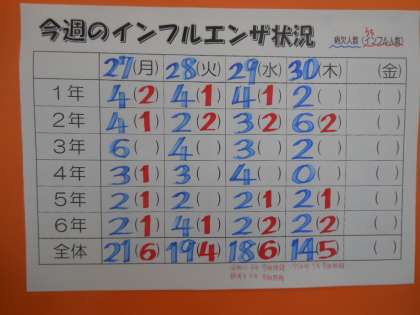 今週のインフルエンザ状況
病欠人数 (インフル人数)
27(月) 28(火) 29(水) 30(木) (金)
1年 4(2) 4(1) 4(1) 2( ) ( )
2年 4(1) 2(2) 3(2) 6(2) ( )
3年 6( ) 4( ) 3( ) 2( ) ( )
4年 3(1) 3( ) 4( ) 0( ) ( )
5年 2(1) 2( ) 2(1) 2(1) ( )
6年 2(1) 4(1) 2(2) 2(2) ( )
全体 21(6) 19(4) 18(6) 14(5) ( )